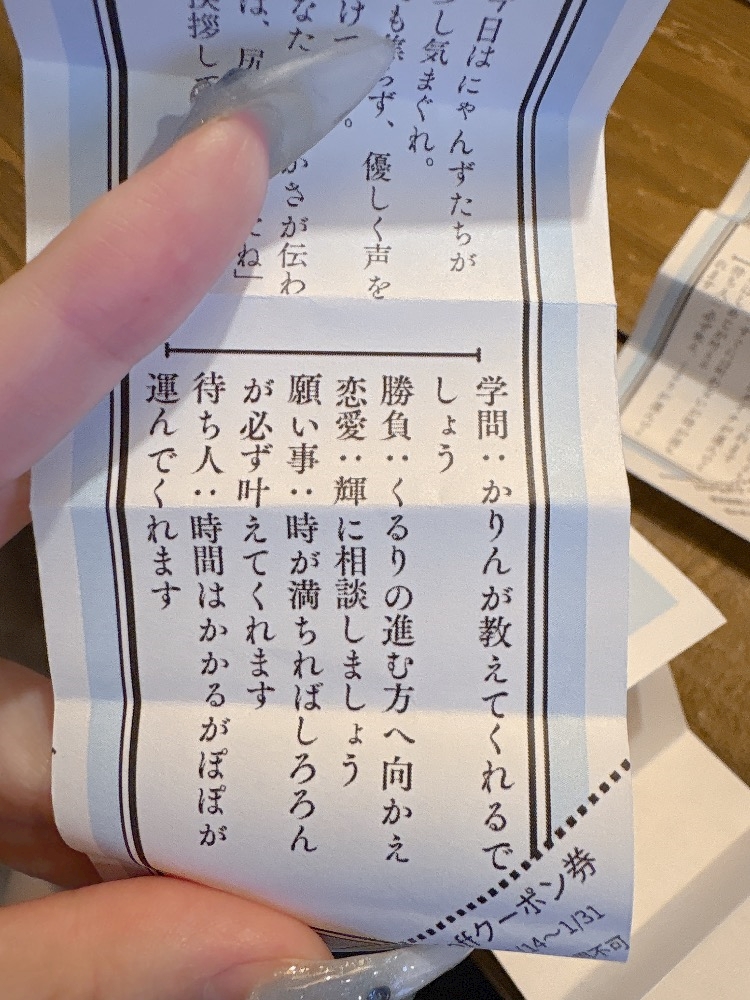 今日はにゃんずたちが
し気まぐれ。
ず、優しく声を
かさが伝わ
ね」
挨拶し
学問：かりんが教えてくれるで
しょう
勝負：くるりの進む方へ向かえ
恋愛：輝に相談しましょう
願い事：時が満ちればしろろん
が必ず叶えてくれます
待ち人：時間はかかるがぽぽが
運んでくれます
クーポン券
14～1/31
不可